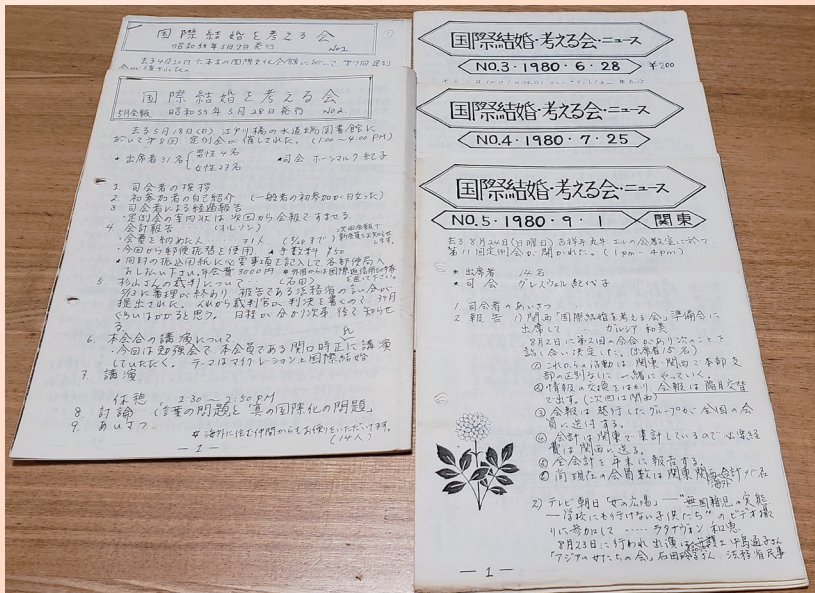 国際結婚を考える会
昭和55年5月7日発行 No1.
国際結婚を考える会
5月会報 昭和55年5月28日発行 No2.
去る5月18日(日) 江戸川橋の水道端図書館に
おいて第8回 定例会が催された。 (1:00~4:00 PM)
★出席者31名 男性4名 女性27名 ★司会 ホーンマルク 紀子
1. 司会者の挨拶
2. 初参加者の自己紹介 (一般者の初参加が目立った)
3. 司会者による経過報告
・定例会の案内状は次回から会報ですませる
4. 会計報告 (オルソン)
・会費を納めた人 31人
・今回から郵便振替を使用 ★手数料 ¥50
★同封の振込用紙に必要事項を記入して各郵便局へ
お出し下い。年会費3000円
5. 杉山さんの裁判について (石田)
審理が終わり 被告である法務省の言い分が
提出された。これから裁判官が判決を書くので 3ヶ月
ぐらいはかかると思う。 日程が分かり次第 後で知らせ
る。
6. 本会合の講演について
・今回は勉強会で本会員である関口時正氏に講演
していただく。 テーマはマイグレーションと国際結婚
7. 講演
休憩 2:30~2:50 PM
8. 討論 「言語の問題と 真の国際化の問題」
9. あいさつ
# 海外に住む仲間からもお便りをいただいてます。
(14人)
-1-
国際結婚・考える会・ニュース
NO.3・1980・6・28 ¥200
国際結婚・考える会・ニュース
NO.4・1980・7・25
国際結婚・考える会・ニュース
NO.5・1980・9・1 関東
去る8月24日(日曜日) 吉祥寺丸井 エルの会教室に於て
第11回定例会が開かれた。 (1pm-4pm)
★出席者 14名
★司会 グレスウェル紀代子
1 司会者のあいさつ
2 報告 1) 関西「国際結婚を考える会」準備会に
出席して ····· ガルシア 和美
8月2日に第2回の会合があり次のことを
話し合い決定した。(出席者15名)
① これからの活動は 関東・関西で本部、支
部の区別なしに 一緒にやっていく。
② 情報の交換をはかり、会報は隔月交替
で出す。(次回は関西)
③ 会報は発行したグループが全国の会
員に送付する。
④ 会計は関東で集計しているので必要経
費は関西に送る。
⑤ 全会計を年末に報告する。
⑥ 尚現在の会員数は関東、関西、海外
2) テレビ朝日「女の広場」-"無国籍児の実態
-学校にも行けない子供たち"のビデオ撮
りに参加して ····· ラタナヴォン 和恵
8月23日に行われ 出演は弁護士 中島通子さん
「アジアの女たちの会」石田玲子さん 法務省民事
-1-